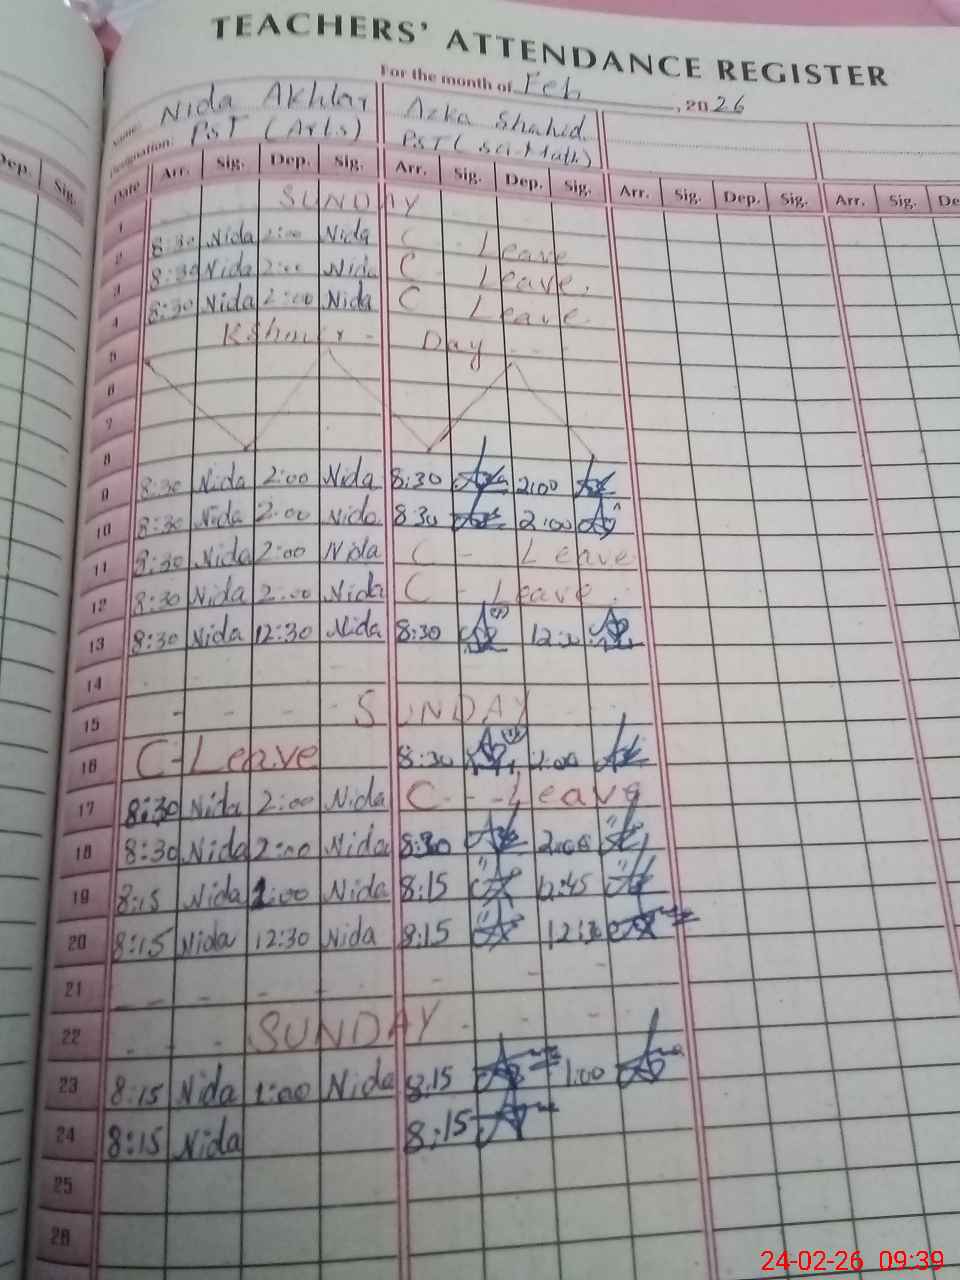 TEACHERS' ATTENDANCE REGISTER
For the month of Feb, 2026
Name: Nida Akhtar Azka Shahid
Designation: PST (Arts) PST (Sci-Math)
Dep. Sig. Date Arr. Sig. Dep. Sig. Arr. Sig. Dep. Sig. Arr. Sig. Dep. Sig. Arr. Sig. De
1 SUNDAY
2 8:30 Nida 2:00 Nida C - Leave
3 8:30 Nida 2:00 Nida C - Leave.
4 8:30 Nida 2:00 Nida C Leave.
5 Kshmir - Day - -
6
7
8
9 8:30 Nida 2:00 Nida 8:30 2:00
10 8:30 Nida 2:00 Nida 8:30 2:00
11 8:30 Nida 2:00 Nida C - Leave
12 8:30 Nida 2:00 Nida C - Leave.
13 8:30 Nida 12:30 Nida 8:30 12:30
14
15 - - - - SUNDAY
16 C-Leave 8:30 2:00
17 8:30 Nida 2:00 Nida C - - Leave
18 8:30 Nida 2:00 Nida 8:30 2:00
19 8:15 Nida 1:00 Nida 8:15 12:45
20 8:15 Nida 12:30 Nida 8:15 12:30
21
22 SUNDAY
23 8:15 Nida 1:00 Nida 8:15 1:00
24 8:15 Nida 8:15
25
26
24-02-26 09:39